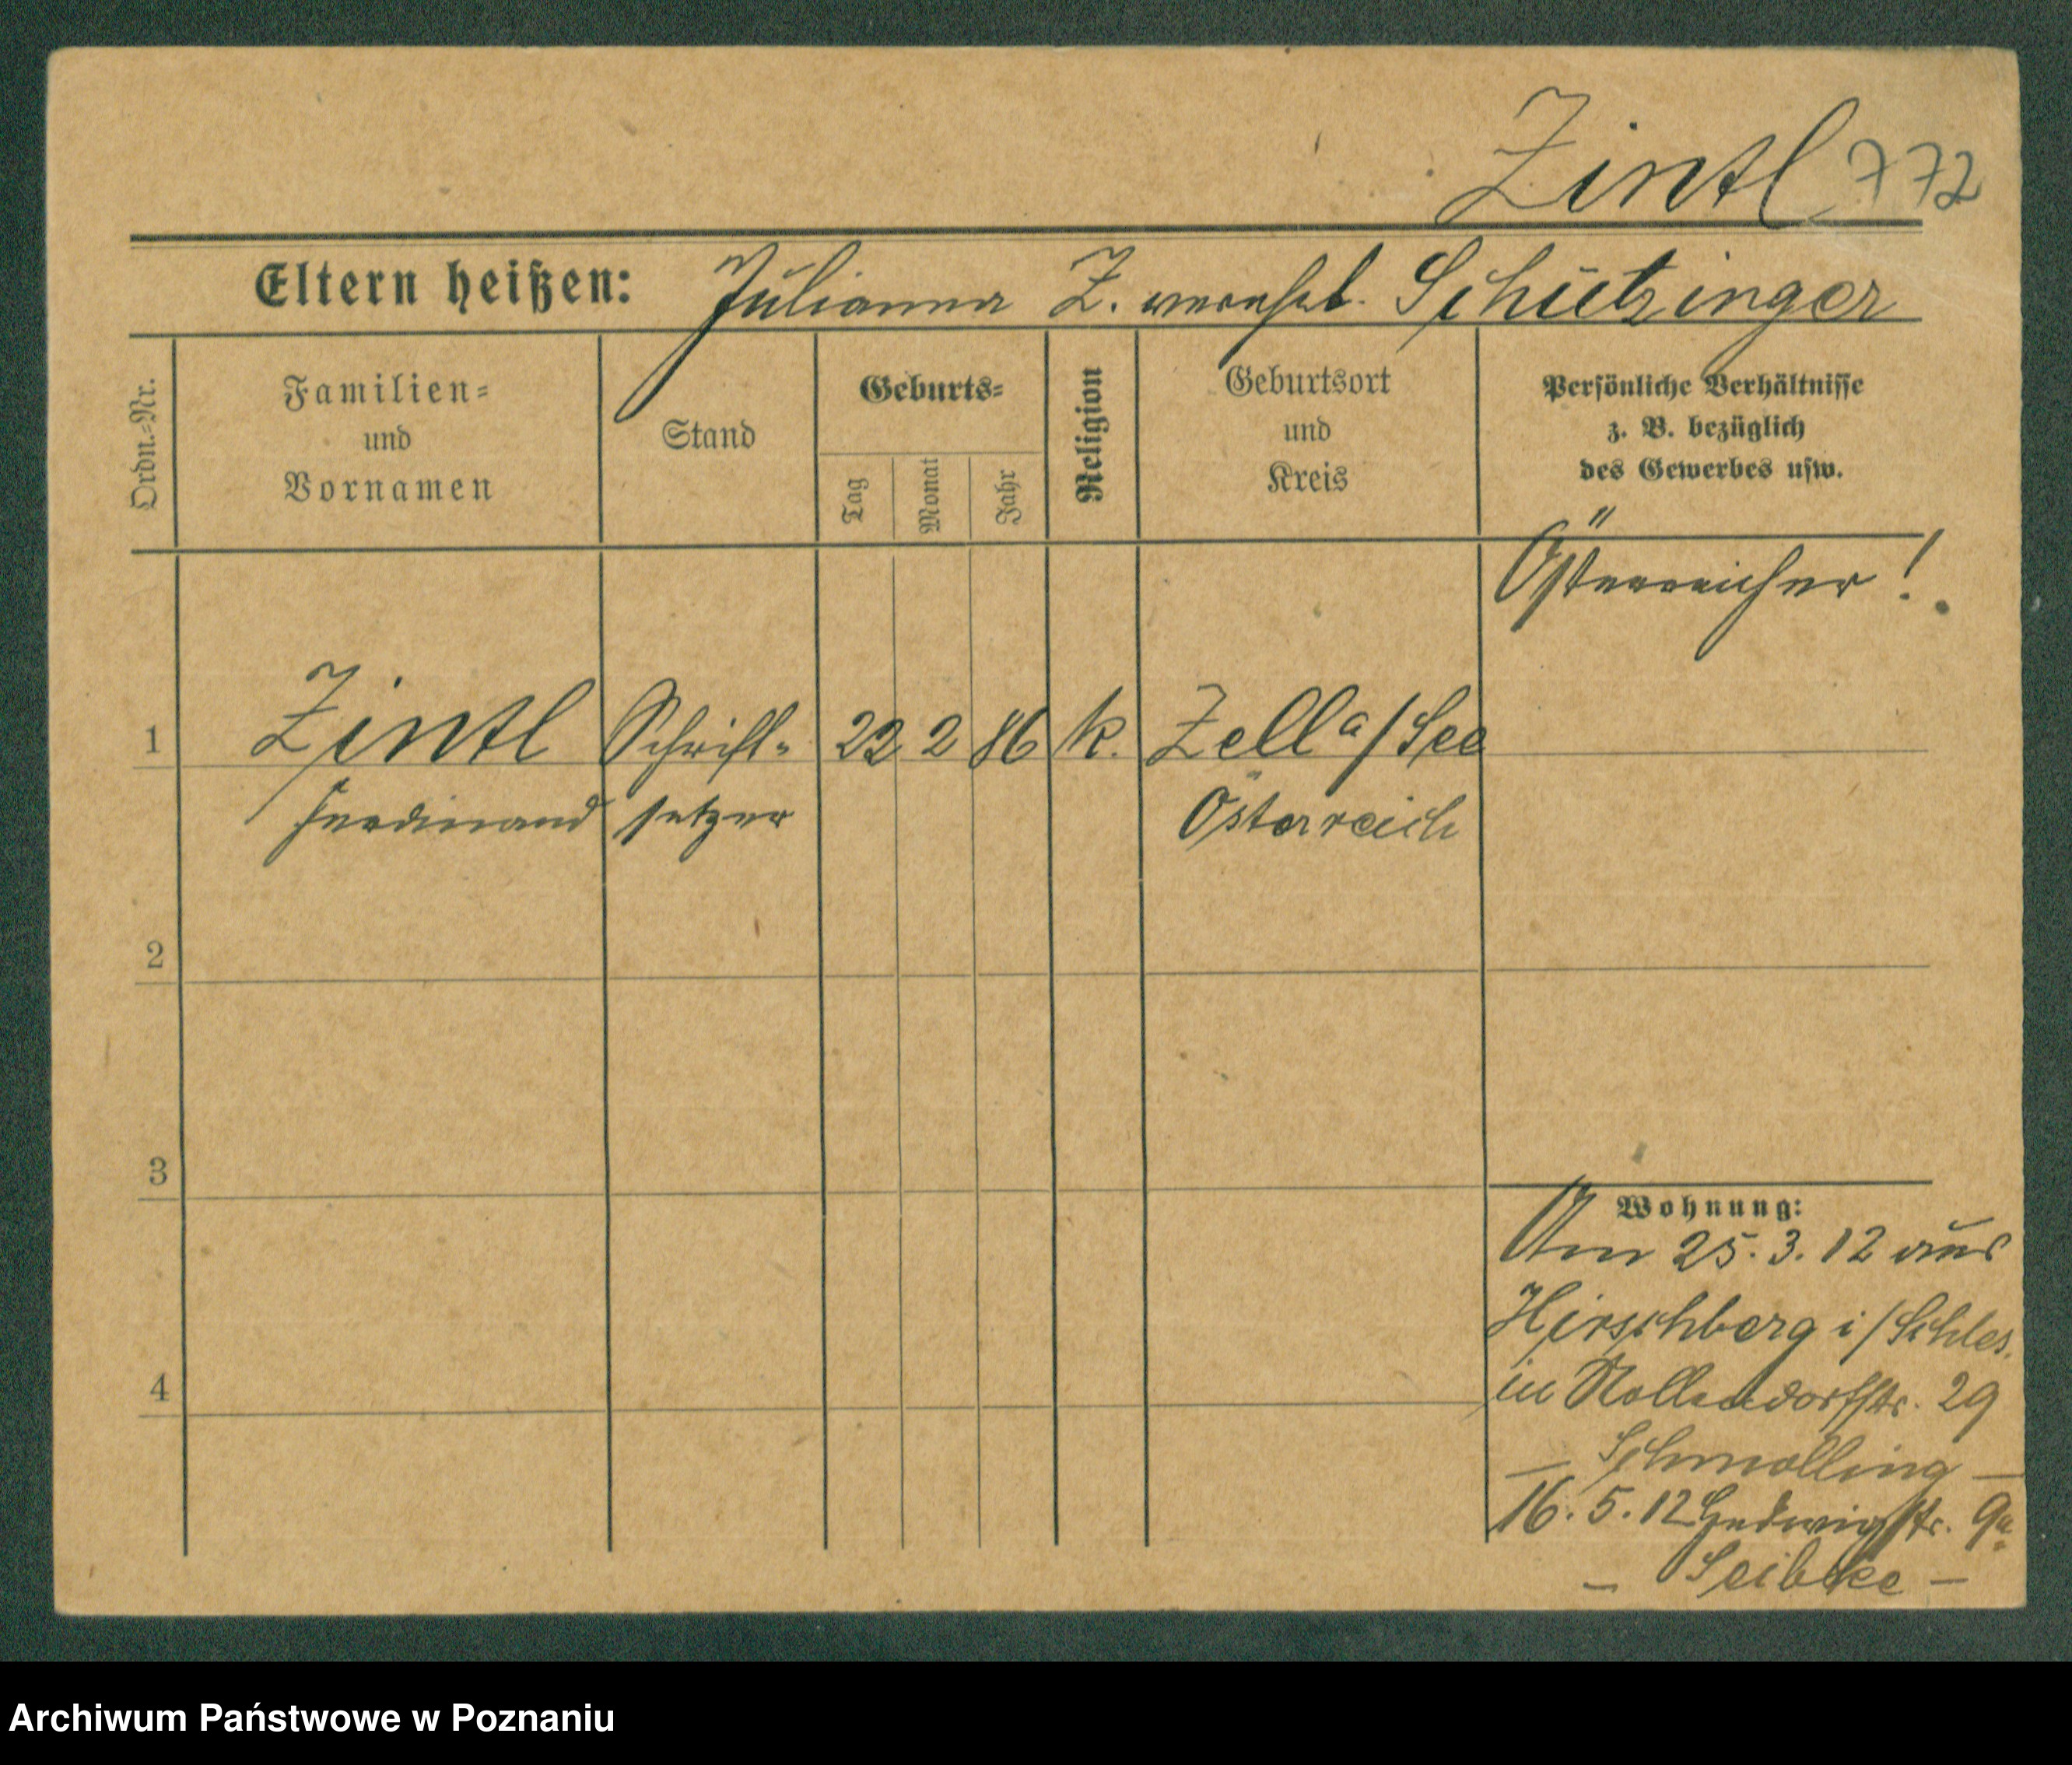 Zintl 772
Eltern heißen: Julianna Z. verehel. Schützinger
Ordn.=Nr.
Familien=
und
Vornamen
Stand
Geburts=
Tag
Monat
Jahr
Religion
Geburtsort
und
Kreis
Persönliche Verhältnisse
z. B. bezüglich
des Gewerbes usw.
Österreicher!
1 Zintl Schrift= 22 2 86 k. Zell a/See
Ferdinand setzer Österreich
2
3
4
Wohnung:
Am 25.3.12 aus
Hirschberg i/Schles.
in Nollendorfstr. 29
– Schmolling –
16.5.12 Hedwigstr. 9a
– Seibtke –
Archiwum Państwowe w Poznaniu